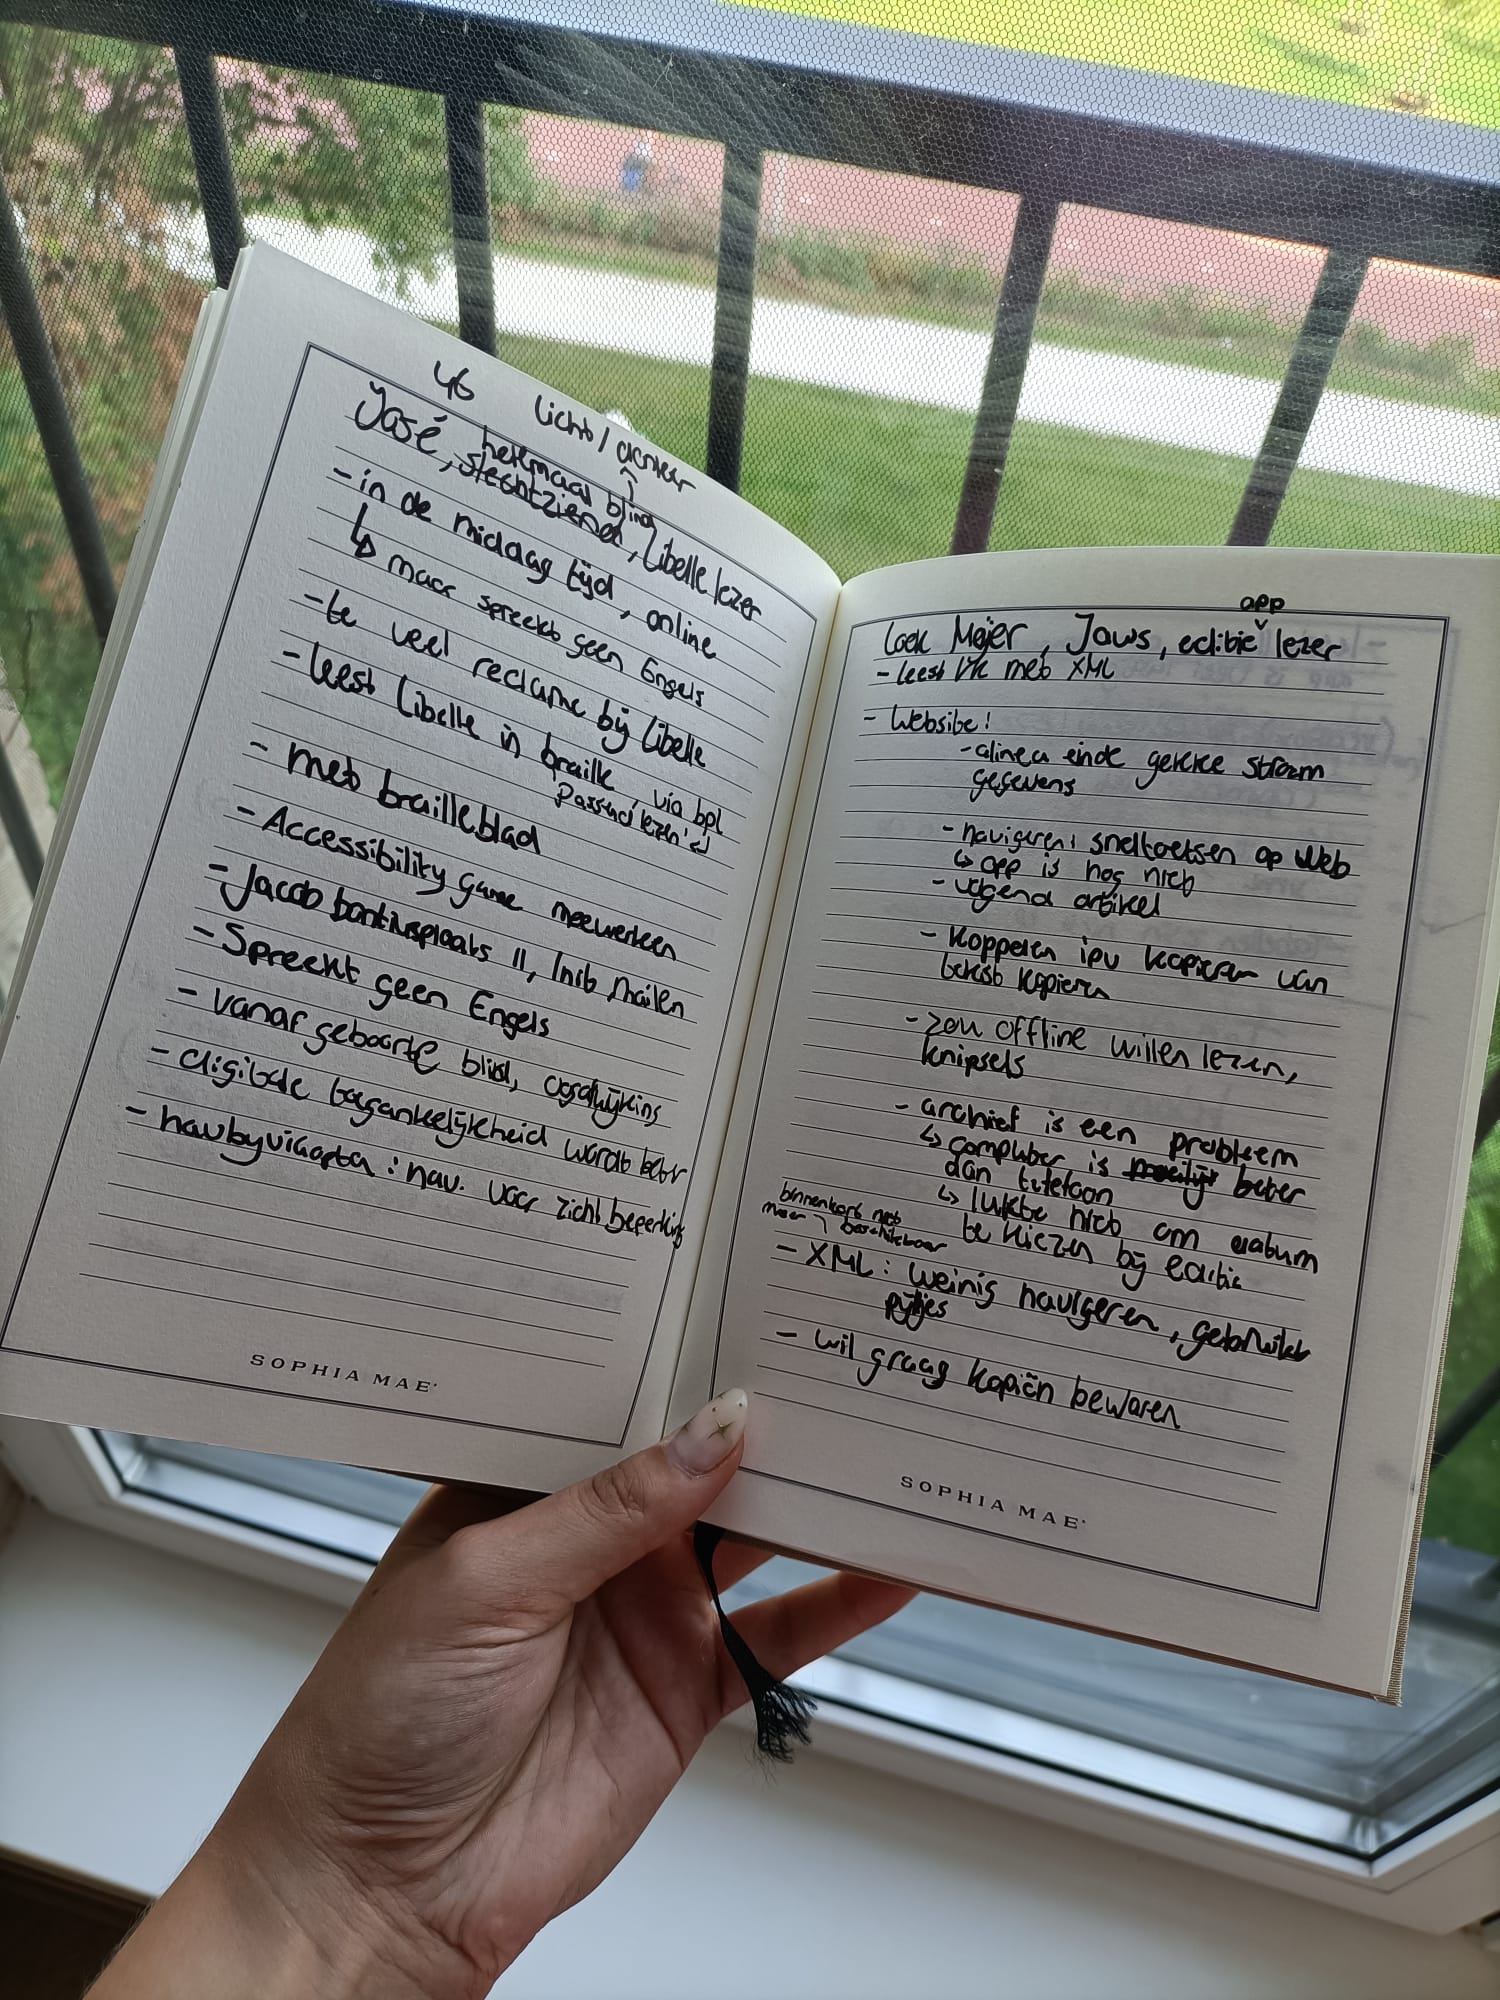 46 licht/donker
José, helemaal blind
slechtziend, Libelle lezer
- in de middag tijd, online
↳ maar spreekt geen Engels
- te veel reclame bij Libelle
- leest Libelle in braille, via bpl
Passend lezen
- met brailleblad
- Accessibility game meewerken
- Jacob bontiusplaats 11, Info mailen
- Spreekt geen Engels
- vanaf geboorte blind,
- digitale toegankelijkheid wordt beter
- navbyvicopta: nav. voor zichtbeperking
SOPHIA MAE
app
Loek Meijer, Jaws, editie lezer
- leest VK met XML
- Website:
- alinea einde gekke stroom
gegevens
- navigeren: sneltoetsen op Web
↳ app is nog niet
- volgend artikel
- Koppelen ipv kopieren van
tekst kopieren
- zou offline willen lezen,
knipsels
- archief is een probleem
↳ computer is moeilijk beter
dan telefoon
↳ lukte niet om datum
te kiezen bij editie
binnenkort niet
meer beschikbaar
- XML: weinig navigeren, gebruikt
pijltjes
- wil graag kopiën bewaren
SOPHIA MAE